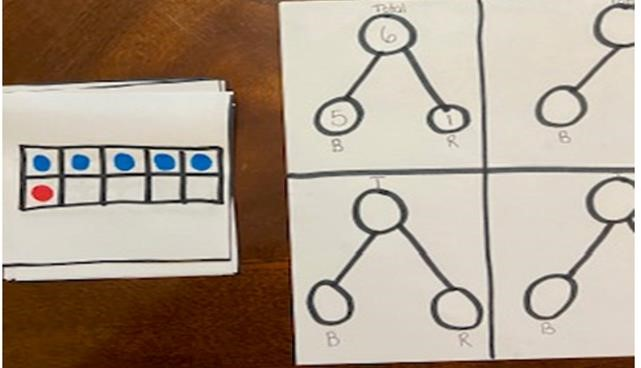 Total
6
5 1
B R
B
T
B R
B